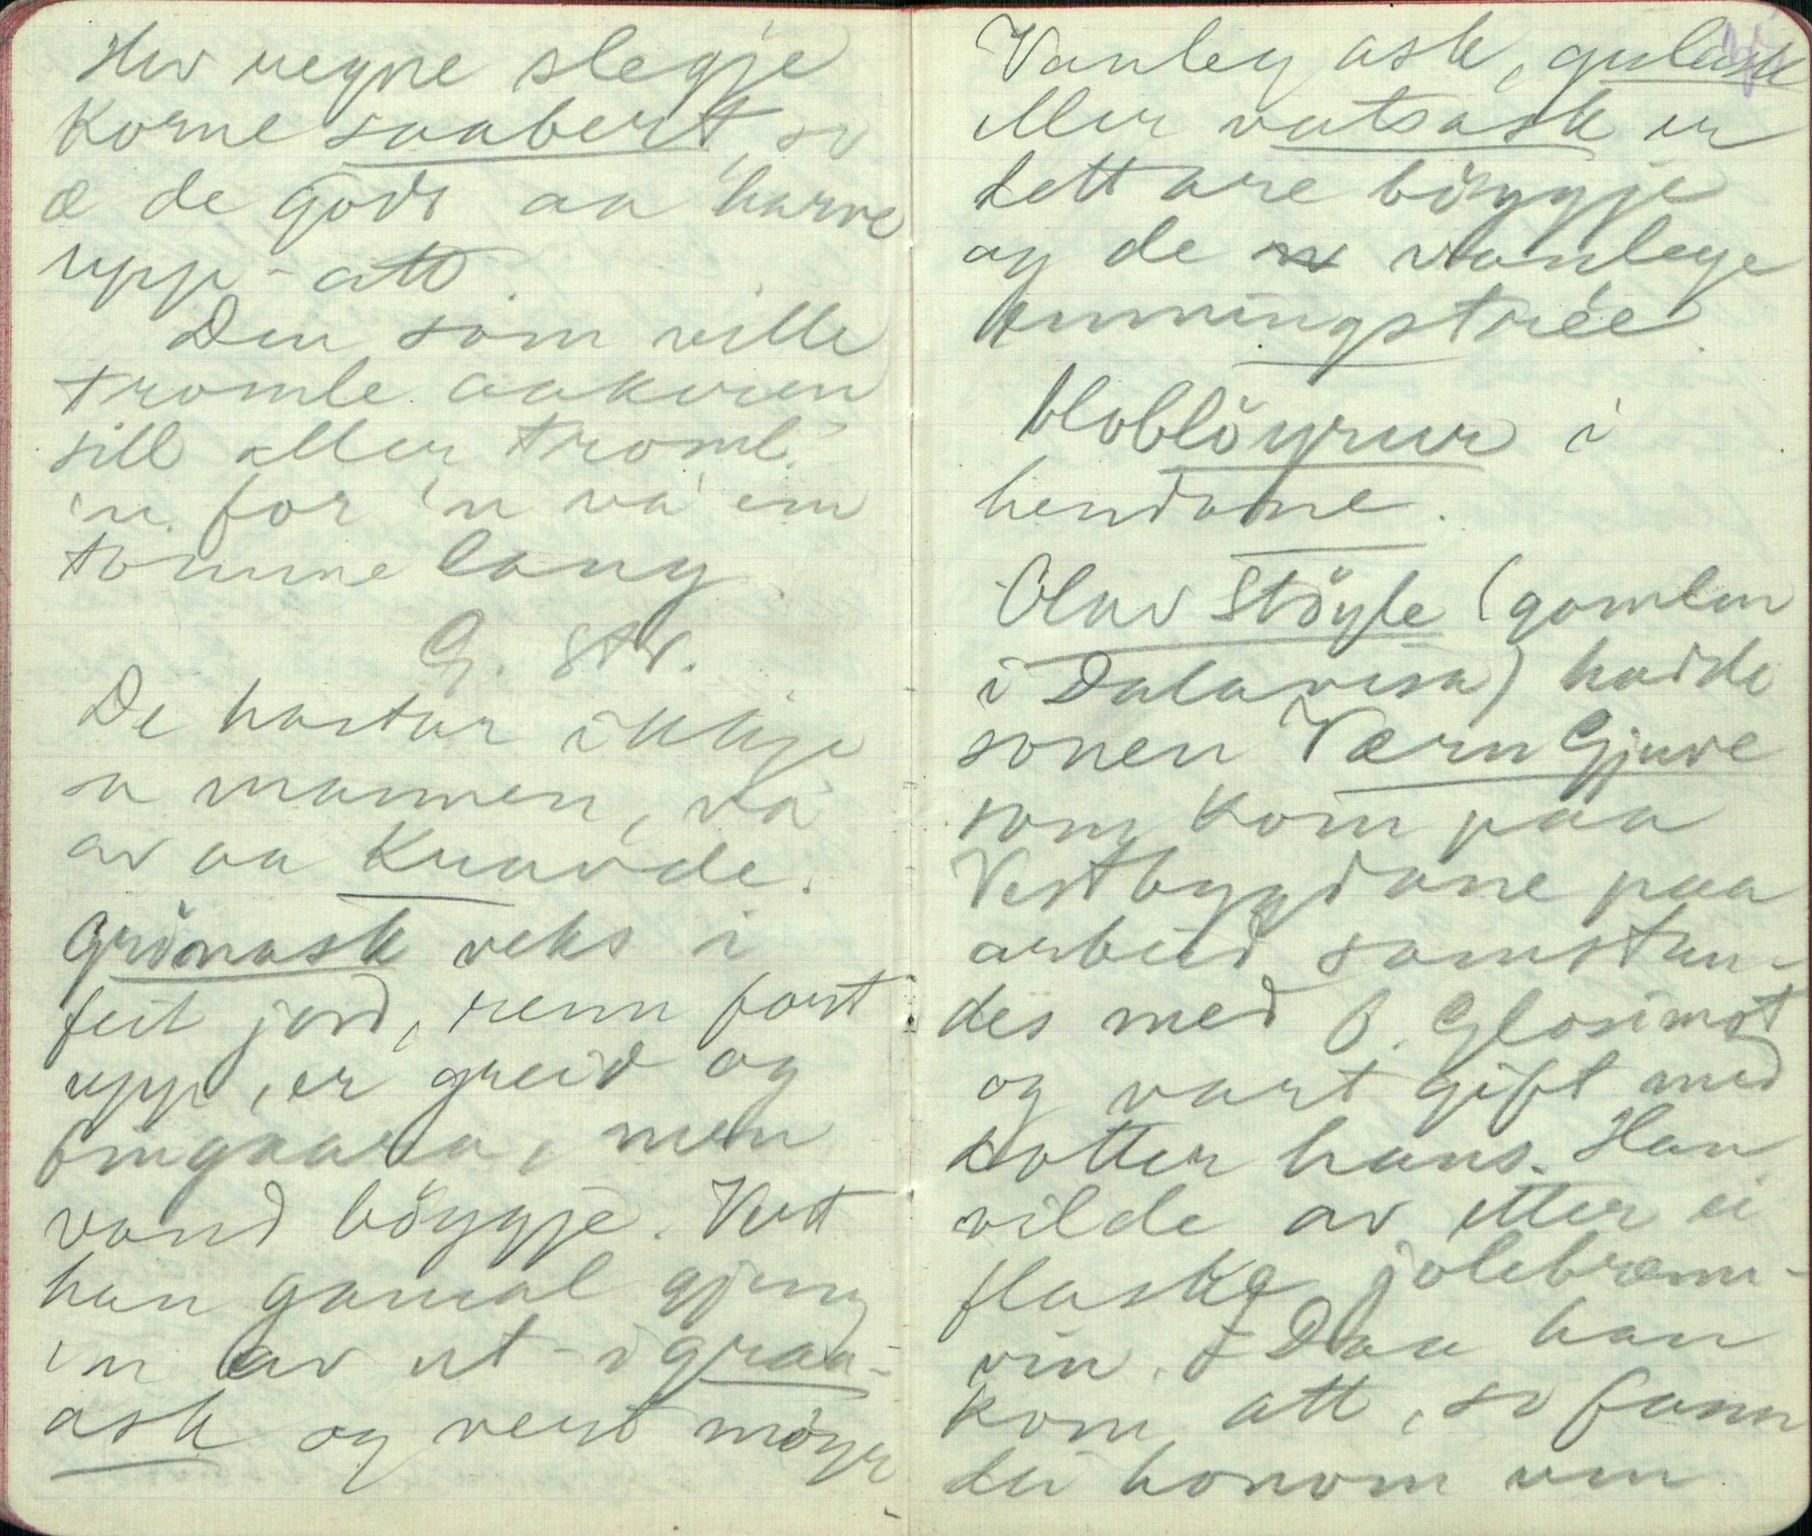 Hev regne slegje
korne saabert, so
æ de godt aa harve
upp-att.
Den som ville
tromle aakeren
sill eller troml'
'n for 'n va ein
tomme lang
G. Str.
De hastar ikkje
sa mannen, va
av aa knavde.
Grönask veks i
feit jord, renn fort
upp, er greid og
fingaara, men
vand böyggje. Vert
han gamal gjeng
'n av ut i graa-
ask og vert möyr
Vanleg ask, gulask
eller vatsask er
lettare böyggje
og de vanlege
emningstrée.
bloblöyrur i
hendane.
Olav Stöyle (gamlen
i Dalavisa) hadde
sonen Værn Gjuve
som kom paa
Vestbygdane paa
arbeid samstun-
des med Ø. Glosimot
og vart gift med
dotter hans. Han
vilde av etter ei
flaske jolebrenn-
vin. Daa han
kom att, so fann
dei honom um